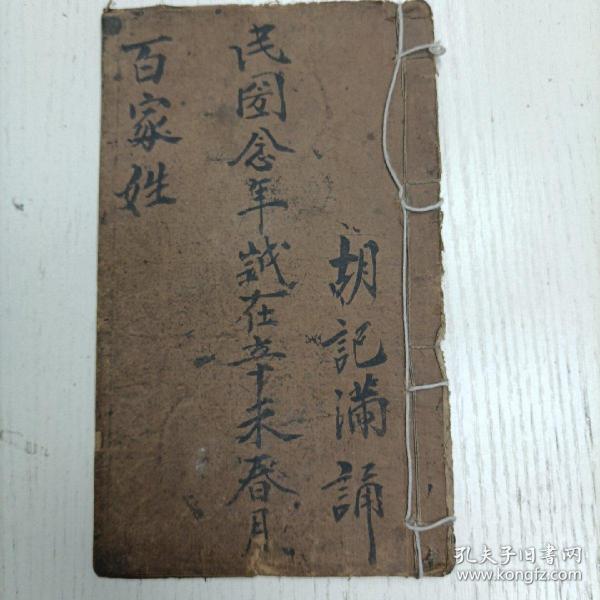 胡記滿誦
民國念年歲在辛未春月
百家姓
孔夫子旧书网
www.kongfz.com